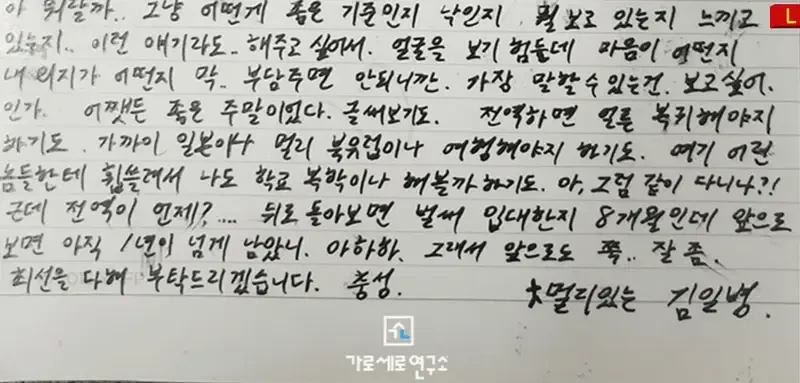 아 뭐랄까.. 그냥 어떤게 좋은 기준인지 낙인지 뭘 보고 있는지 느끼고
있는지.. 이런 얘기라도.. 해주고 싶어서. 얼굴을 보기 힘든데 마음이 어떤지
내 의지가 어떤지 막.. 부담주면 안되니깐. 가장 말할수 있는건. 보고싶어.
인가. 어쨋든 좋은 주말이었다. 글써보기도. 전역하면 얼른 복귀해야지
하기도. 가까이 일본이나 멀리 북유럽이나 여행해야지 하기도. 여기 어린
놈들한테 휩쓸려서 나도 학교 복학이나 해볼까 하기도. 아, 그럼 같이 다니나?!
근데 전역이 언제?.... 뒤로 돌아보면 벌써 입대한지 8개월인데 앞으로
보면 아직 1년이 넘게 남았니. 아하하. 그래서 앞으로도 쭉.. 잘 좀..
최선을 다해 부탁드리겠습니다. 충성.
멀리있는 김일병.
가로세로연구소
L